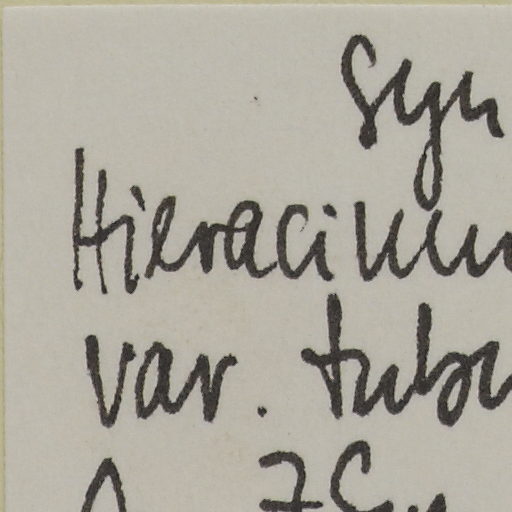 Syn
Hieracium
var. tubu